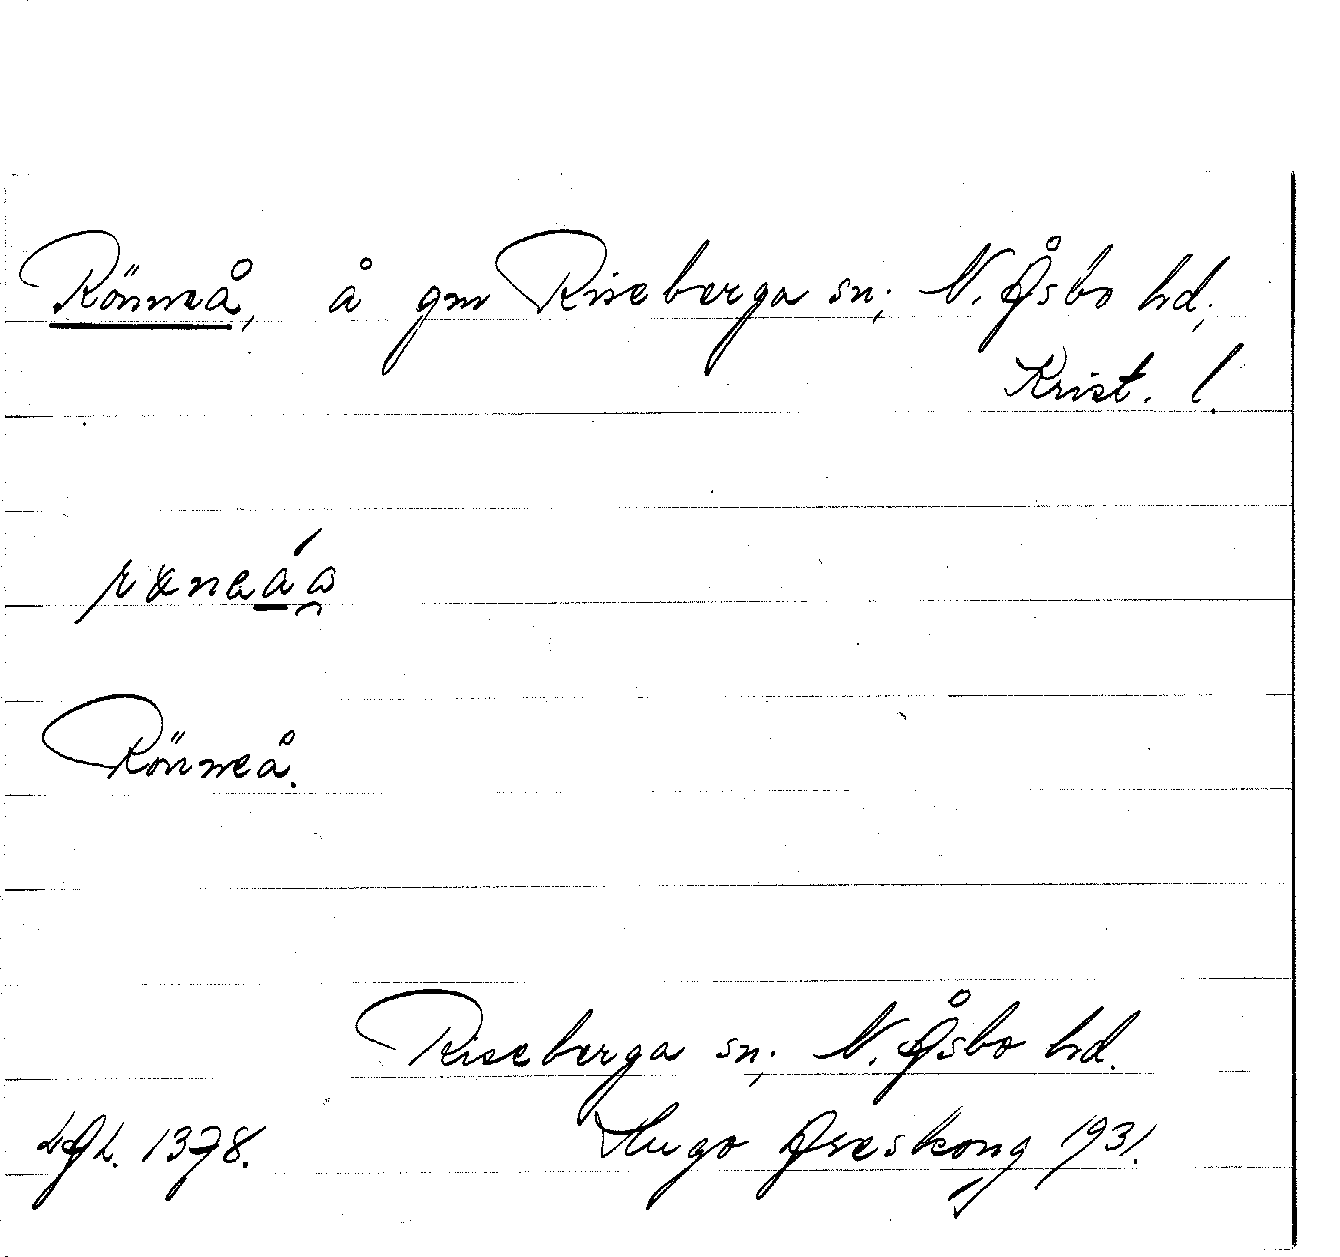 Rönneå, å gm Riseberga sn; N. Åsbo hd;
Krist. l.
Rönneå.
Riseberga sn; N. Åsbo hd.
1378. Hugo Areskoug 1931.